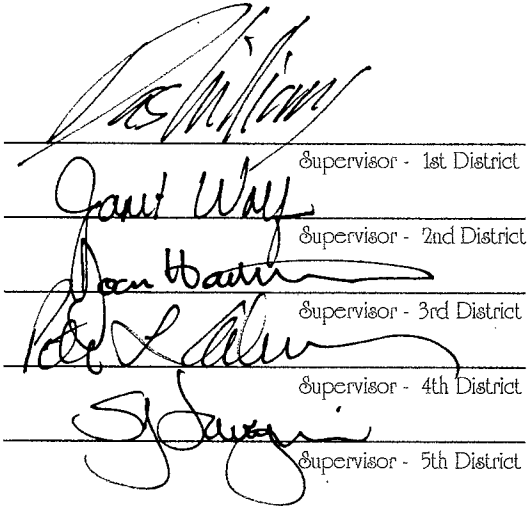 Das Williams
Supervisor - 1st District
Janet Wolf
Supervisor - 2nd District
Joan
Supervisor - 3rd District
Supervisor - 4th District
Supervisor - 5th District